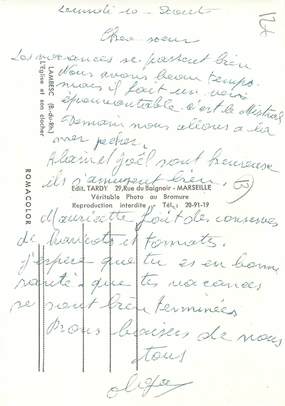 Lundi 10 Aout
Chere soeur
Les vacances se passent bien
Nous avons beau temps
mais il fait un vent
épouvantable c'est le Mistral
Demain nous allons a la
mer pecher.
et joël sont heureux
ils s'amusent bien.
Mauricette fait des conserves
de haricots et tomates
j'espère que tu es en bonne
santé que tes vacances
se sont bien terminées
Bons baisers de nous
tous
LAMBESC (B.-du-Rh.)
L'Eglise et son clocher
ROMACOLOR
Edit. TARDY 29, Rue du Baignoir - MARSEILLE
Véritable Photo au Bromure
Reproduction interdite Tél. : 20-91-19